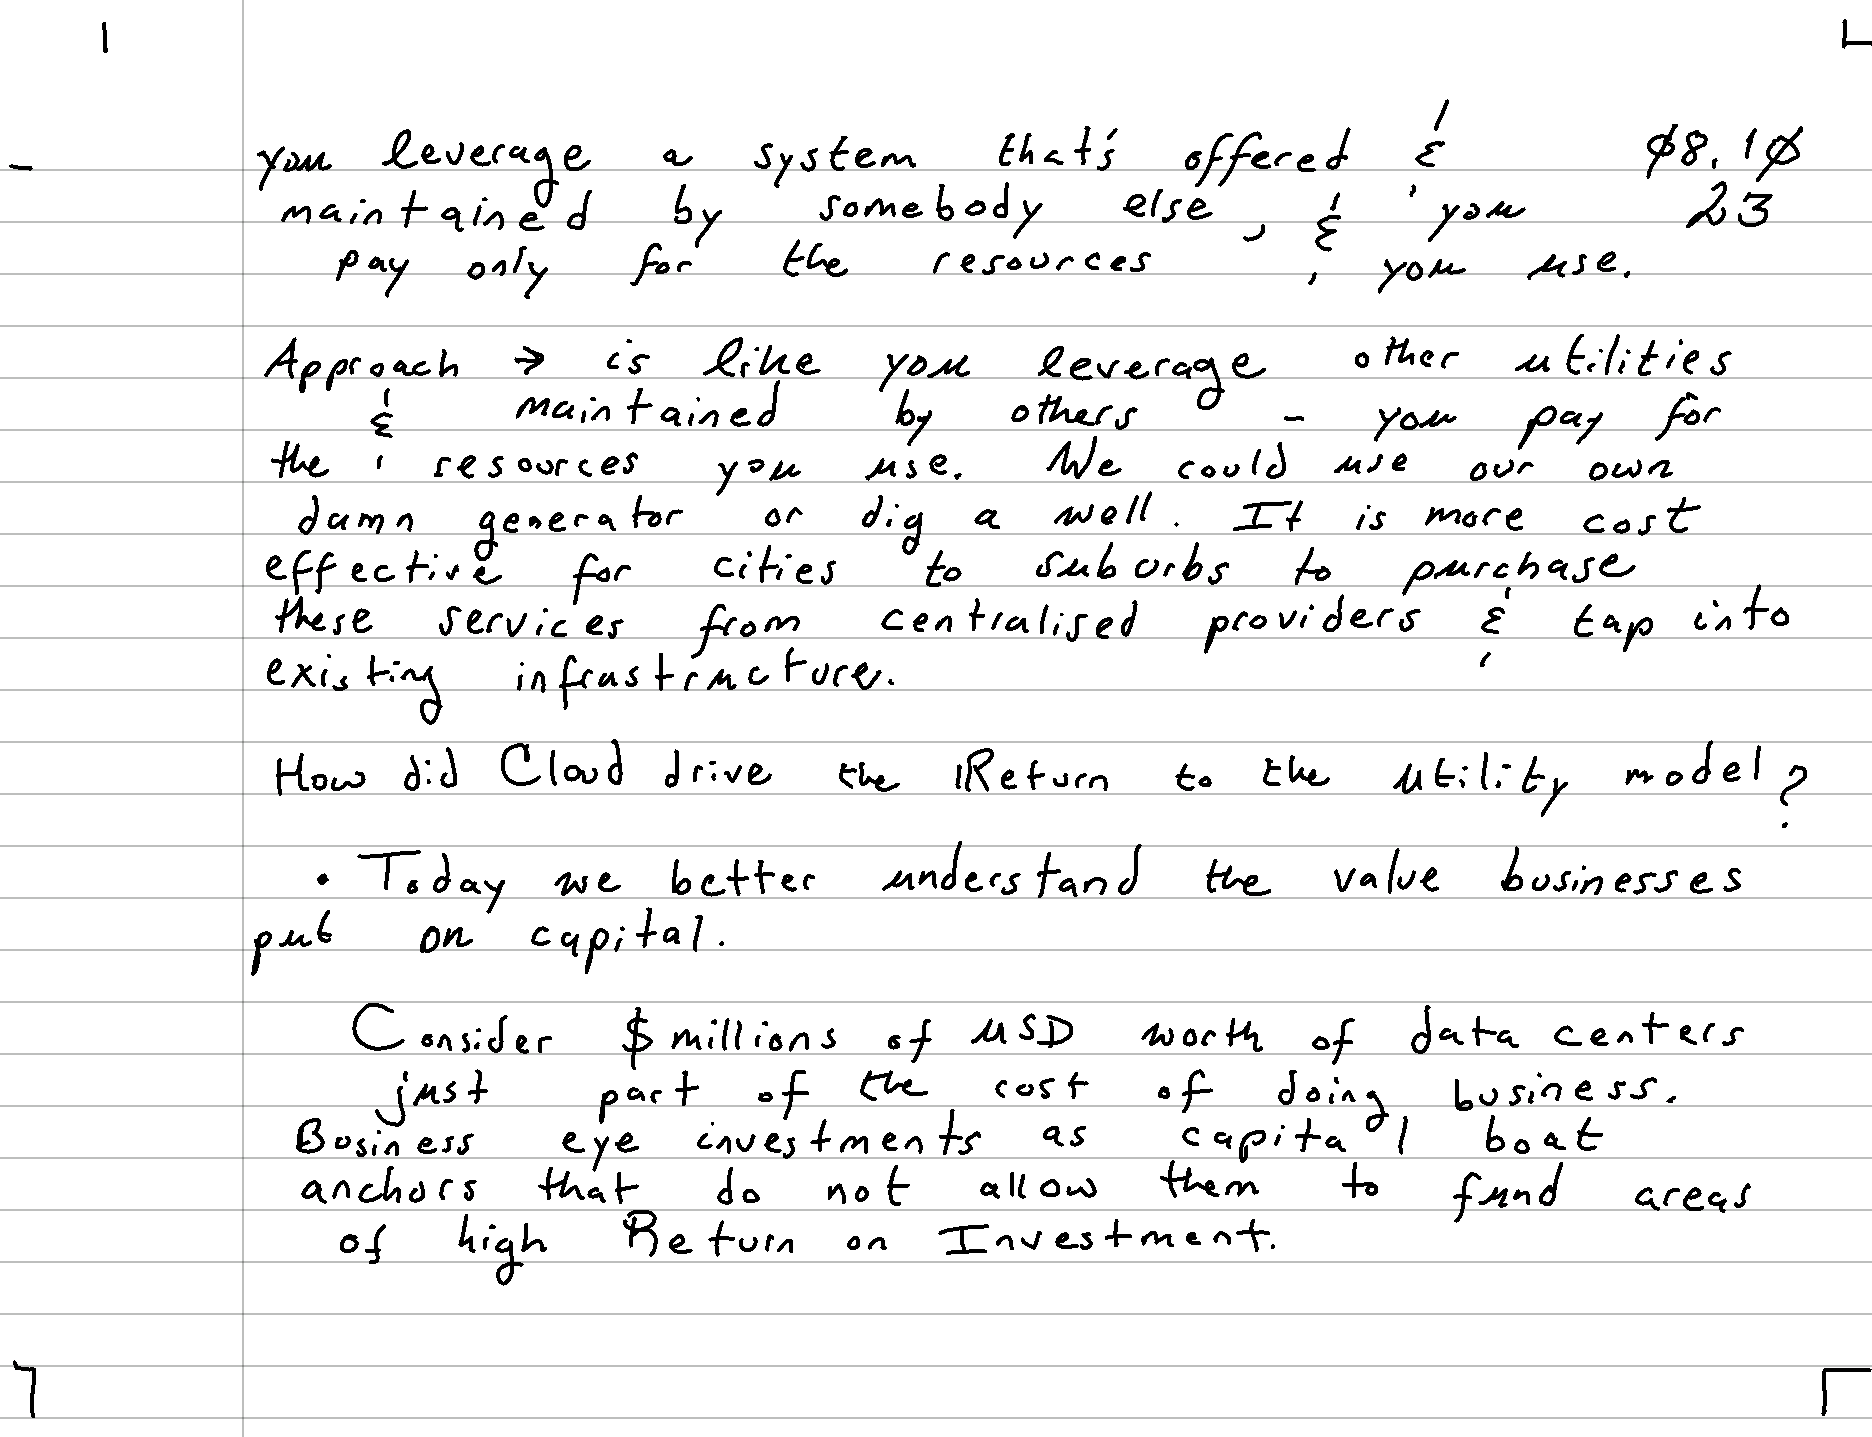 you leverage a system that's offered & 08.10
maintained by somebody else, & you 23
pay only for the resources, you use.
Approach → is like you leverage other utilities
& maintained by others - you pay for
the resources you use. We could use our own
damn generator or dig a well. It is more cost
effective for cities to suburbs to purchase
these services from centralised providers & tap into
existing infrastructure.
How did Cloud drive the Return to the utility model?
• Today we better understand the value businesses
put on capital.
Consider $ millions of USD worth of data centers
just part of the cost of doing business.
Business eye investments as capital boat
anchors that do not allow them to fund areas
of high Return on Investment.